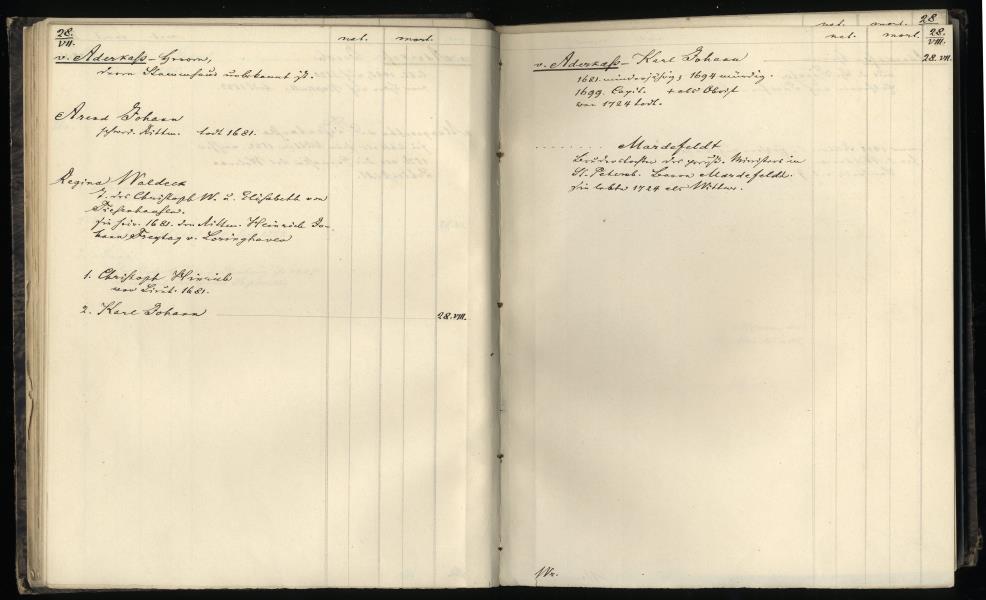 28.
VII.
nat. mort.
v. Aderkaß - Groorn,
deren Stammhaus unbekannt ist.
Arend Johann
schwed. Rittm. todt 1681.
Regina Waldeck
T. des Christoph W. u. Elisabeth von
Tiesenhausen.
sie heir. 1681. den Rittm. Heinrich Jo-
hann Freytag v. Loringhoven
1. Christoph Hinrich
war Lieut. 1681.
2. Karl Johann 28. VIII.
nat. mort. 28
nat. mort. 28.
VIII.
v. Aderkaß - Karl Johann 28. VII.
1681. minderjährig; 1694 mündig.
1699. Capit. + als Obrist
war 1724 todt.
. . . . . . . . Mardefeldt
Brudertochter des preuß. Ministers in
St. Petersb. Baron Mardefeldt.
sie lebte 1724 als Wittwe.